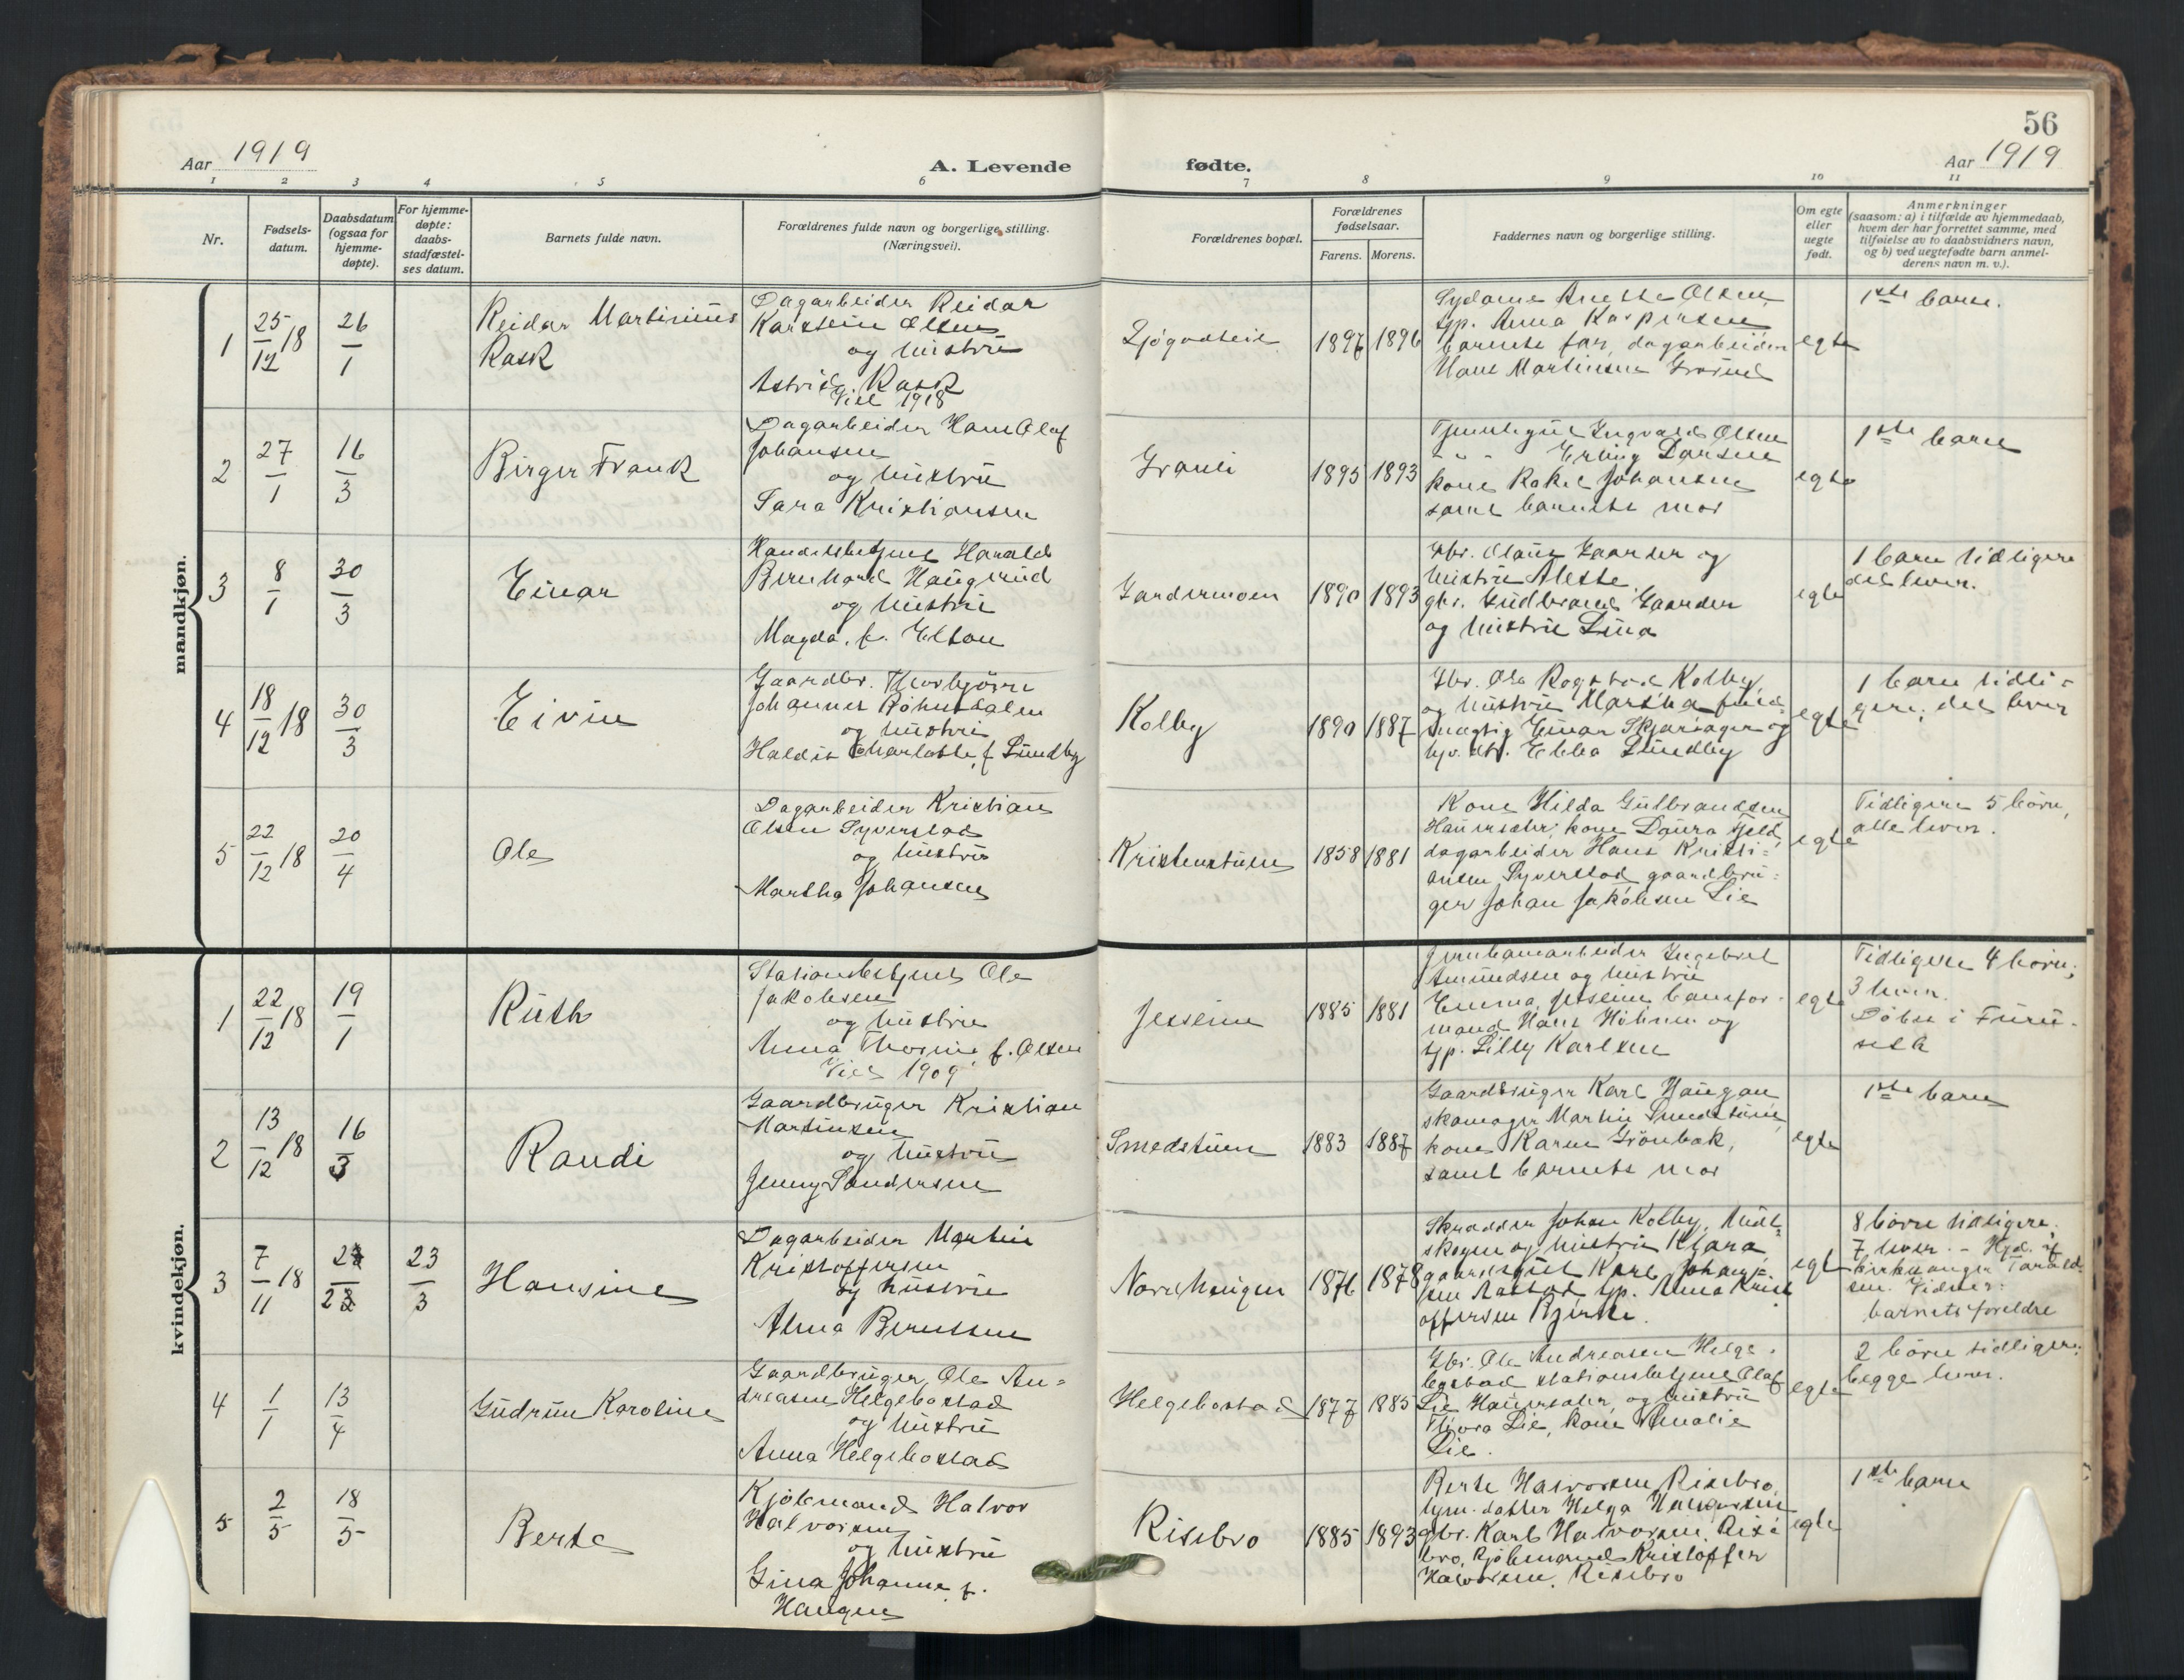 56
Aar 1919
A. Levende
fødte.
Aar 1919
1 2 3 4 5 6 7 8 9 10 11
Nr.
Fødsels-
datum.
Daabsdatum
(ogsaa for
hjemme-
døpte).
For hjemme-
døpte:
daabs-
stadfæstel-
ses datum.
Barnets fulde navn.
Forældrenes fulde navn og borgerlige stilling.
(Næringsvei).
Forældrenes bopæl.
Forældrenes
fødselsaar.
Farens. Morens.
Faddernes navn og borgerlige stilling.
Om egte
eller
uegte
født.
Anmerkninger
(saasom: a) i tilfælde av hjemmedaab,
hvem der har forrettet samme, med
tilføielse av to daabsvidners navn,
og b) ved uegtefødte barn anmel-
derens navn m. v.).
mandkjøn.
1
25/12 18
26/1
Reidar Martinius
Rask
Dagarbeider Reidar
Karstein Olsen
og hustru
Astrid Rask
Viet 1918
1897 1896
Sydame Anette Olsen
tjp. Anna Kaspersen
barnets far, dagarbeider
Hans Martinsen
egte
1ste barn.
2
27/1
16/3
Birger Frank
Dagarbeider Hans Olaf
Johansen
og hustru
Sara Kristiansen
Grauli
1895 1893
Tjenestegut Ingvald Olsen
- " - Erling Larsen
kone Rakel Johansen
samt barnets mor
egte
1ste barn
3
8/1
30/3
Einar
Handelsbetjent Harald
Bernhard Haugerud
og hustru
Magda f. Elton
Gardermoen
1890 1893
Gbr. Olaus Gaarder og
hustru Alette
gbr. Gudbrand Gaarder
og hustru Lina
egte
1 barn tidligere
det lever.
4
18/12 18
30/3
Eivin
Gaardbr. Thorbjörn
Johannes Röhnsdalen
og hustru
Haldis Charlotte f Lundby
Kolby
1890 1887
Gbr. Ole Rogstad Kolby
og hustru Martha
Einar Skjærager og
Ebba Lundby
egte
1 barn tidli=
gere; det lever
5
22/12 18
20/4
Ole
Dagarbeider Kristian
Olsen Syverstad
og hustru
Martha Johansen
Kristenstuen
1858 1881
Kone Hilda Gulbrandsen
Hauersæter, kone Laura Fjeld
dagarbeider Hans Kristi=
ansen Syverstad gaardbru=
ger Johan Jakobsen Lie
egte
Tidligere 5 börn,
alle lever.
kvindekjøn.
1
22/12 18
19/1
Ruth
Stationsbetjent Ole
Jakobsen
og hustru
Anna Thorine f. Olsen
Viet 1909
Jesseim
1885 1881
Jernbanearbeider Ingebret
Amundsen og hustru
Emma, Jesseim banefor-
mand Hans Holmen og
tjp. Lilly Karlsen
egte
Tidligere 4 börn;
3 lever.
Döbt i Furu-
seth
2
13/12 18
16/3
Randi
Gaardbruger Kristian
Martinsen
og hustru
Jenny Sandersen
Smedstuen
1883 1887
Gaardbruger Karl Haugan
skomager Martin Smedstuen
kone Karen Grönbæk,
samt barnets mor
egte
1ste barn
3
7/11 18
23
23/3
Hansine
Dagarbeider Martin
Kristoffersen
og hustru
Alma Berntsen
Nordhaugen
1876 1878
Skrædder Johan Kolby, Midt-
skogen og hustru Klara
gaardsgut Karl Johan=
sen Aastad tjp. Anna Krist
offersen Bjerke.
egte
8 börn tidligere.
7 lever. - Hjd. af
kirkesanger Tarald-
sen. Vidner:
barnets foreldre
4
1/1
13/4
Gudrun Karoline
Gaardbruger Ole An=
dreasen Helgebostad
og hustru
Anna Helgebostad
Helgebostad
1877 1885
Gbr. Ole Andreasen Helge-
bostad stationsbetjent Olaf
Lie Hauersæter, og hustru
Thora Lie, kone Amalie
Lie.
egte
2 börn tidligere;
begge lever.
5
2/5
18/5
Berte
Kjöbmand Halvor
Halvorsen
og hustru
Gina Johanne f.
Haugen
Risebro
1885 1893
Berte Halvorsen Risebro,
hjm. datter Helga Halvorsen
gbr. Karl Halvorsen, Rise
bro, kjöbmand Kristoffer
Halvorsen, Risebro
egte
1ste barn